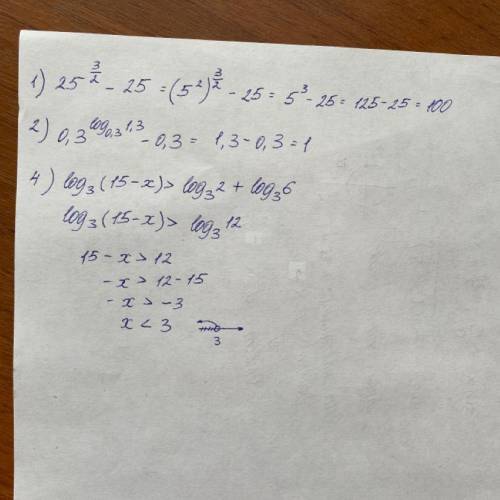 1) 25^(3/2) - 25 = (5²)^(3/2) - 25 = 5³ - 25 = 125 - 25 = 100
2) 0,3^(log_0,3 1,3) - 0,3 = 1,3 - 0,3 = 1
4) log₃(15-x) > log₃2 + log₃6
log₃(15-x) > log₃12
15 - x > 12
-x > 12-15
-x > -3
x < 3
3